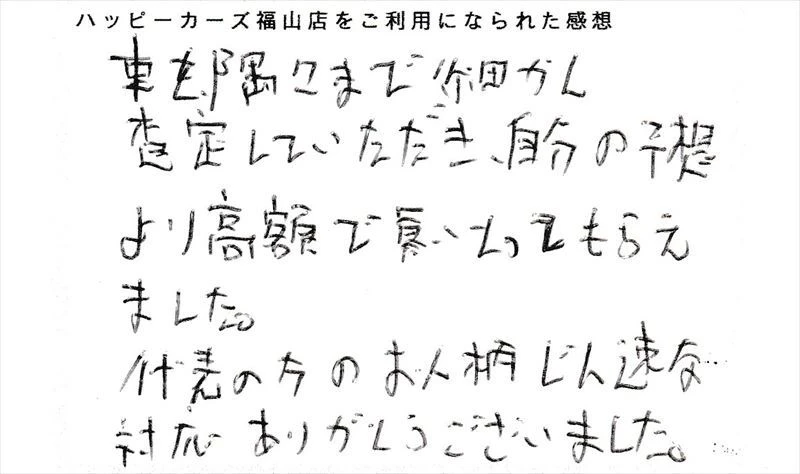 ハッピーカーズ福山店をご利用になられた感想
車を隅々まで細かく
査定していただき、自分の予想
より高額で買いとってもらえ
ました。
代表の方のお人柄じん速な
対応ありがとうございました。